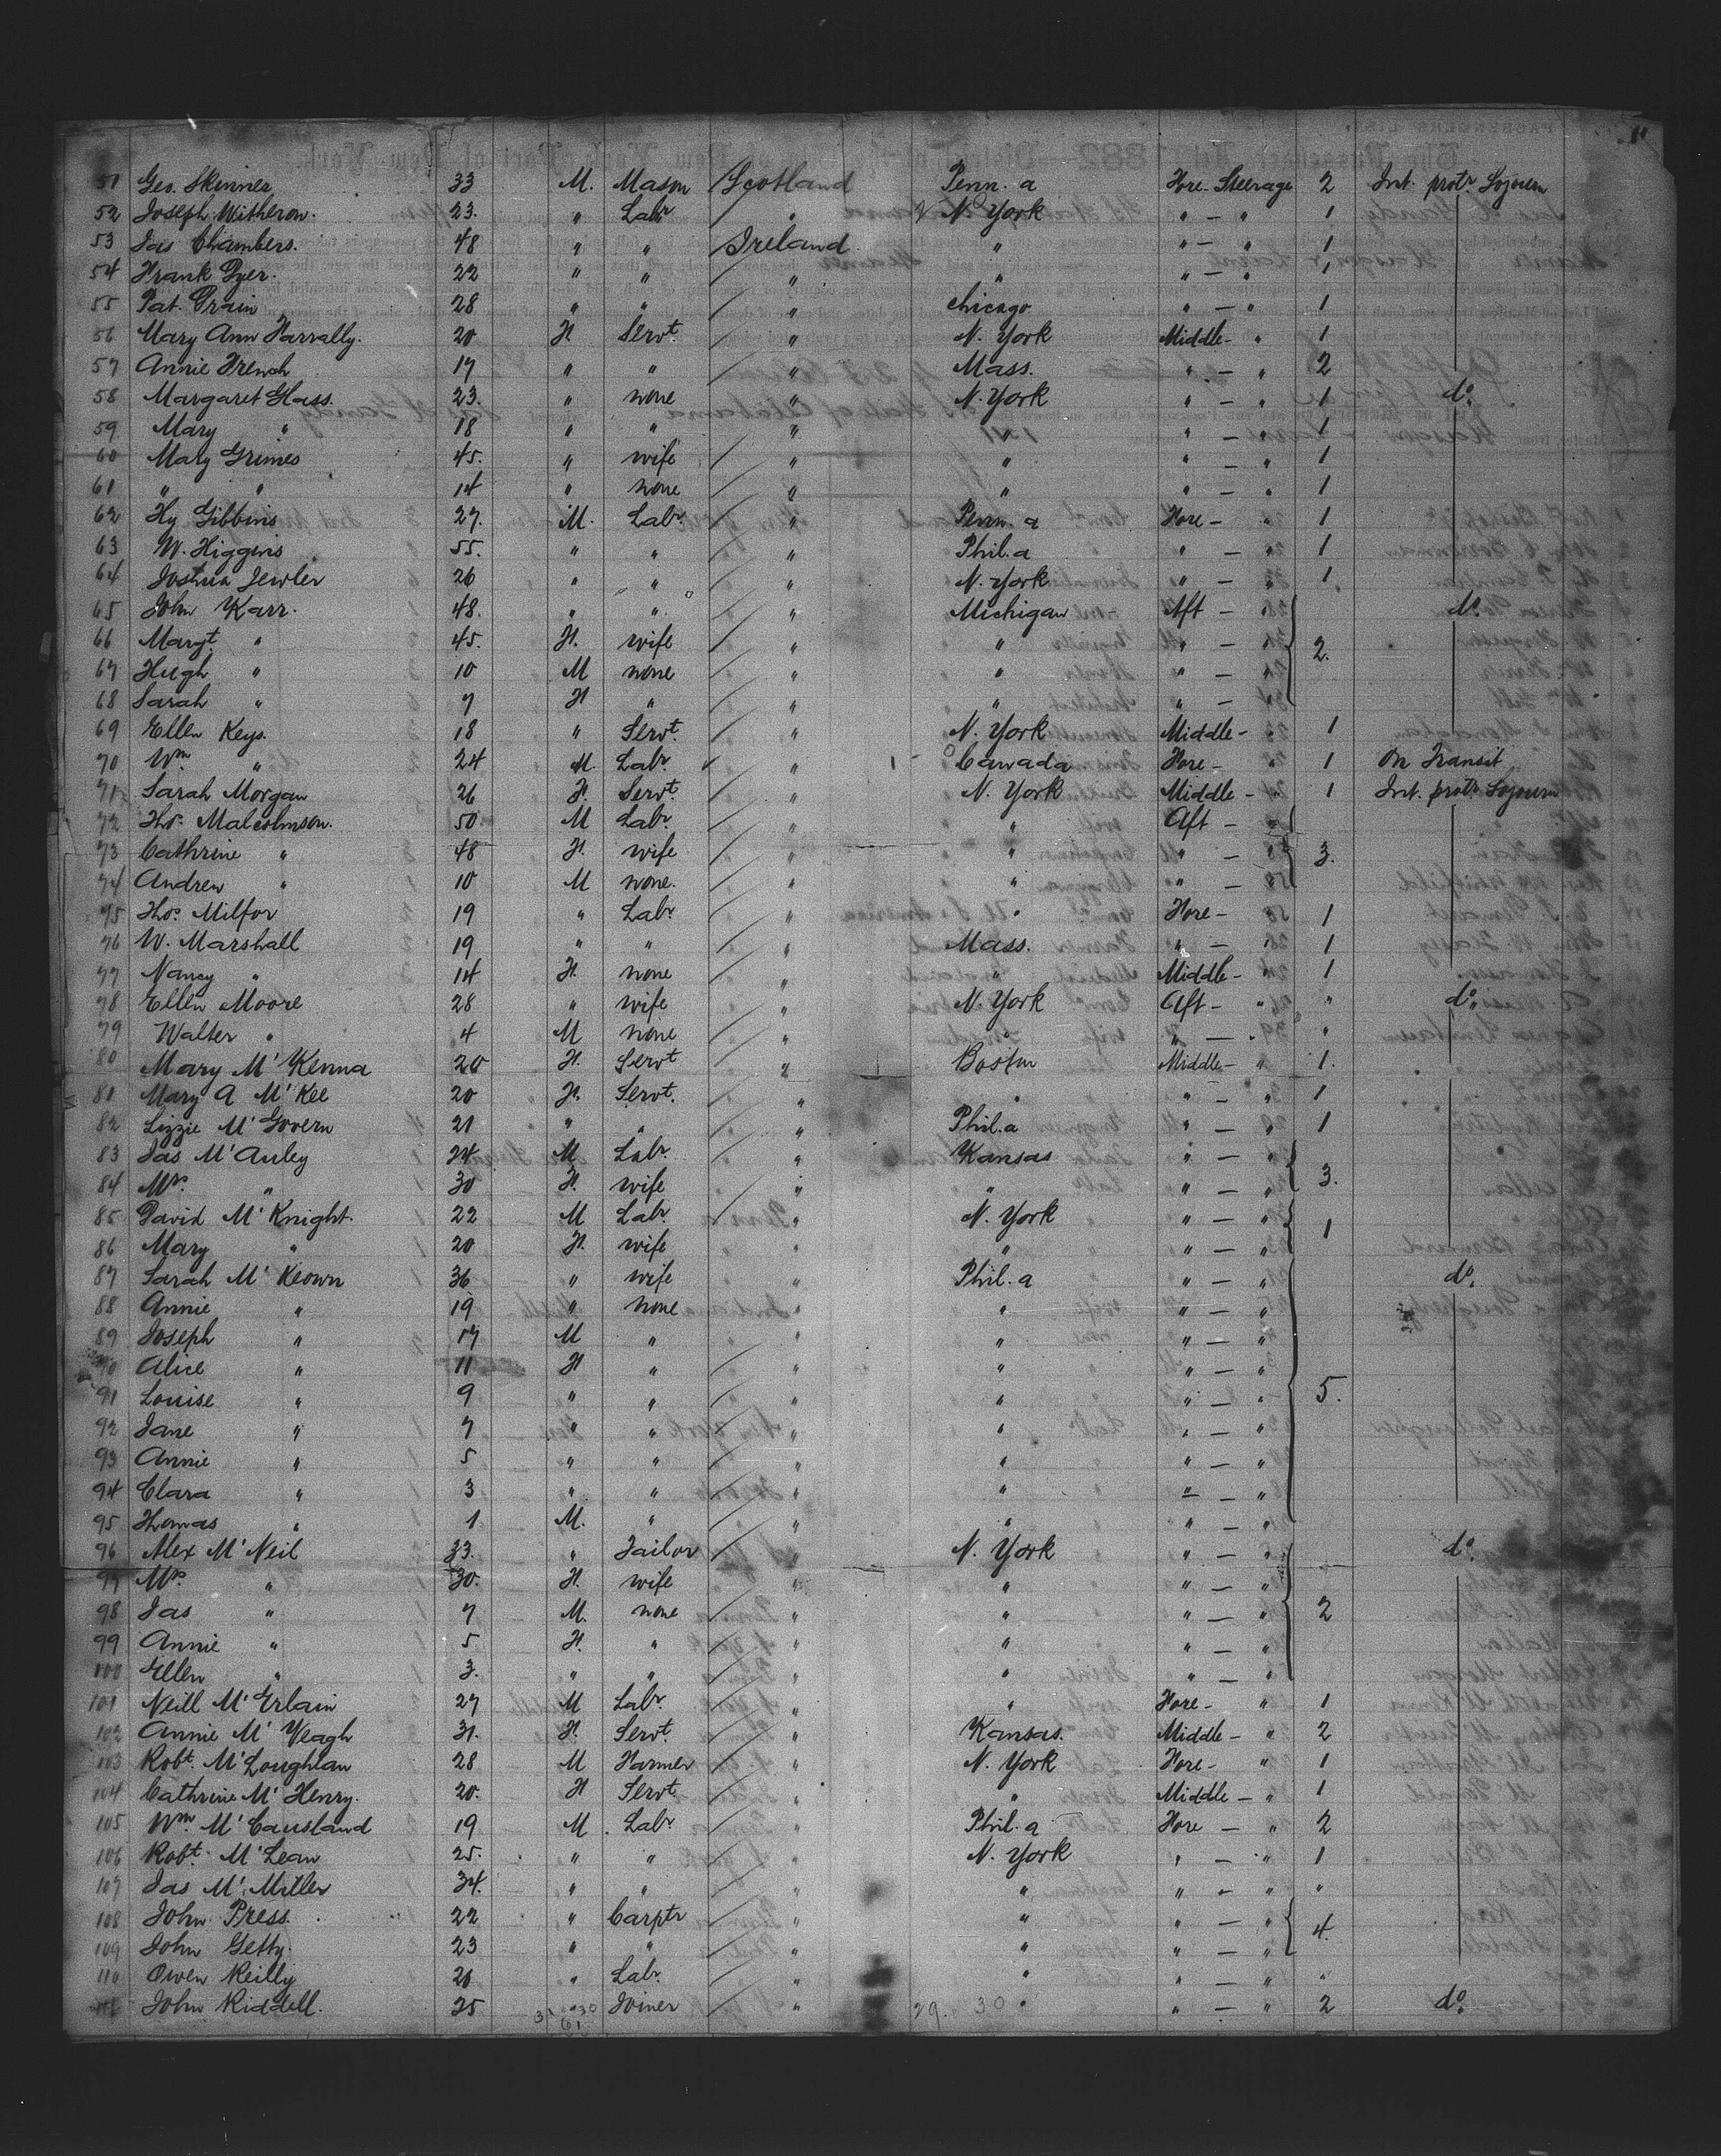 51 Geo. Skinner 33 M. Mason Scotland Penn.a Fore - Steerage 2 Int. protr. Sojourn
52 Joseph Witherow. 23. " Labr. " N. York " - " 1
53 Jas Chambers. 48 " " Ireland " " - " 1
54 Frank Dyer. 22 " " " " " - " 1
55 Pat. Prain 28 " " " Chicago " - " 1
56 Mary Ann Farrally. 20 F. Servt. " N. York Middle - " 1
57 Annie French 17 " " " Mass. " - " 2
58 Margaret Glass. 23. " none " N. York " - " 1 do.
59 Mary " 18 " " " " " - " 1
60 Mary Grimes 45. " wife " " " - " 1
61 " " 14 " none " " " - " 1
62 Hy Gibbins 27. M. Labr. " Penn.a Fore - " 1
63 W. Higgins 55. " " " Phil.a " - " 1
64 Joshua Jewler 26 " " " N. York " - " 1
65 John Karr. 48. " " " Michigan Aft - " do.
66 Margt. " 45. F. wife " " " - " 2.
67 Hugh " 10 M none " " " - "
68 Sarah " 7 F " " " " - "
69 Ellen Keys. 18 " Servt. " N. York Middle - " 1
70 Wm " 24 M. Labr. " Canada Fore - " 1 On Transit
71 Sarah Morgan 26 F. Servt. " N. York Middle - " 1 Int. protr. Sojourn
72 Thos. Malcolmson. 50 M Labr. " " Aft - "
73 Cathrine " 48 F. wife " " " - " 3.
74 Andrew " 10 M none. " " " - "
75 Thos. Milfor 19 " Labr. " " Fore - " 1
76 W. Marshall 19 " " " Mass. " - " 1
77 Nancy " 14 F. none " " Middle - " 1
78 Ellen Moore 28 " wife " N. York Aft - " " do.
79 Walter " 4 M none " " " - " "
80 Mary M'Kenna 20 F. Servt " Boston Middle - " 1.
81 Mary A M'Kee 20 F. Servt. " " " - " 1
82 Lizzie M'Govern 21 " " " Phil.a " - " 1
83 Jas M'Auley 24. M Labr. " Kansas " - "
84 Mrs. " 30 F. wife " " " - " 3.
85 David M'Knight. 22 M Labr. " N. York " - "
86 Mary " 20 F. wife " " " - " 1
87 Sarah M'Keown 36 " wife " Phil.a " - " do.
88 Annie " 19 " none " " " - "
89 Joseph " 17 M " " " " - "
90 Alice " 11 F " " " " - "
91 Louise " 9 " " " " " - " 5.
92 Jane " 7 " " " " " - "
93 Annie " 5 " " " " " - "
94 Clara " 3 " " " " " - "
95 Thomas " 1 M. " " " " - "
96 Alex M'Neil 33. " Tailor " N. York " - " do.
97 Mrs. " 30. F. wife " " " - "
98 Jas " 7 M. none " " " - " 2
99 Annie " 5 F. " " " " - "
100 Ellen " 3. " " " " " - "
101 Neill M'Erlain 27 M Labr. " " Fore - " 1
102 Annie M'Veagh 31. F. Servt. " Kansas. Middle - " 2
103 Robt. M'Loughlan 28 M Farmer " N. York Fore - " 1
104 Cathrine M'Henry. 20. F Servt. " " Middle - " 1
105 Wm. M'Causland 19 M. Labr. " Phil.a Fore - " 2
106 Robt. M'Lean 25. " " " N. York " - " 1
107 Jas M'Miller 34. " " " " " - " "
108 John Press. 22 " Carptr " " " - "
109 John Getty. 23 " " " " " - " 4.
110 Owen Reilly 26 " Labr. " " " - " "
111 John Riddell. 25 " Joiner " " " - " 2 do.
31 30 29. 30
61